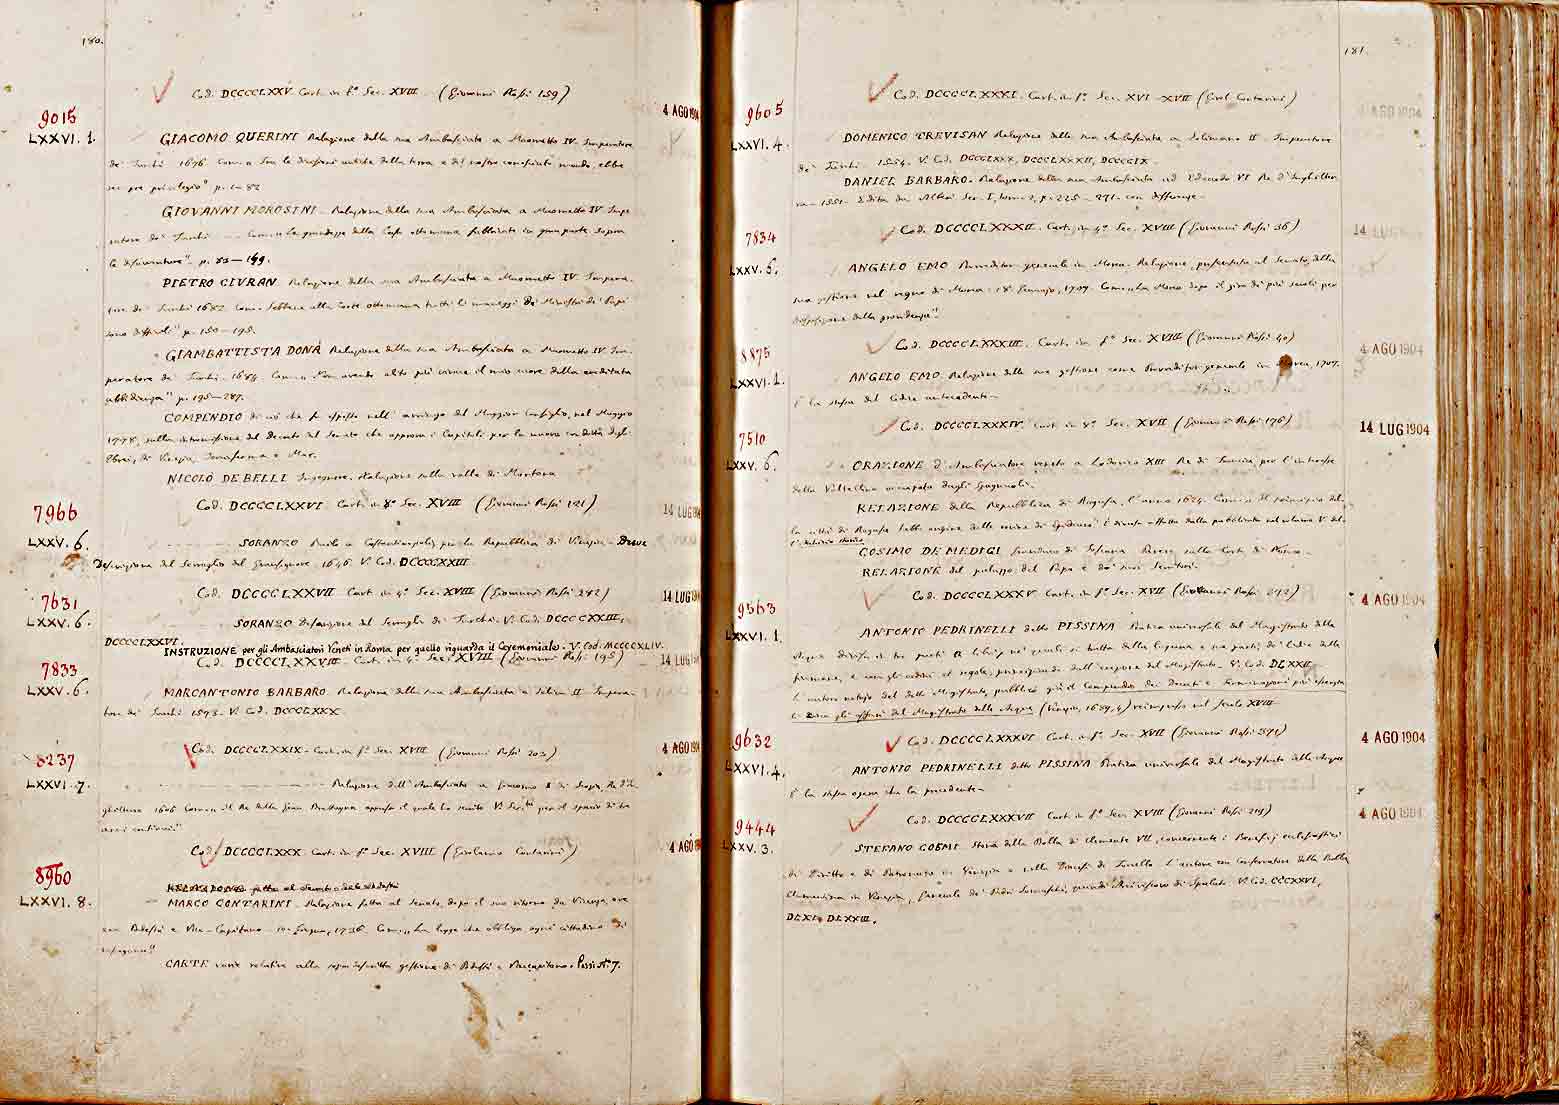 180.
Cod. DCCCCLXXV. Cart. in fº. Sec. XVIII (Giovanni Rossi 159)
9015
LXXVI. 1.
4 AGO 1904
GIACOMO QUERINI Relazione della sua Ambasciata a Maometto IV. Imperatore
de' Turchi 1676 Com. Tra le divisioni antiche della terra e del nostro conosciuto mondo, ebbe
sempre privilegio" p. 1-82
GIOVANNI MOROSINI Relazione della sua Ambasciata a Maometto IV. Impe
ratore de' Turchi Com. La grandezza della Casa ottomana fabbricata in gran parte sopra
le disavventure". p. 83-149.
PIETRO CIVRAN Relazione della sua Ambasciata a Maometto IV. Impera
tore de' Turchi 1682 Com. Sebbene alla Corte ottomana tutti li maneggi de' Ministri de' Prin
sono difficili" p. 150-195.
GIAMBATTISTA DONÀ Relazione della sua Ambasciata a Maometto IV. Im
peratore de' Turchi. 1684 Com. Non avendo altro più vivace il mio cuore della ereditata
ubbidienza" p. 195-287.
COMPENDIO di ciò che fu esposto nell' arringo del Maggior Consiglio, nel Maggio
1778, sulla intromissione del Decreto del Senato che approva i Capitoli per la nuova condotta degli
Ebrei, di Venezia, Terraferma e Mar.
NICOLÒ DE BELLI Ingegnere. Relazione sulla valle di Montona
Cod. DCCCCLXXVI Cart. in 8º Sec. XVIII (Giovanni Rossi 121)
7966
LXXV. 6.
14 LUG 1904
SORANZO Bailo a Costantinopoli per la Repubblica di Venezia. Breve
Descrizione del Serraglio del Gransignore. 1646. V. Cod. DCCCCXXIII
Cod. DCCCCLXXVII Cart. in 4º Sec. XVIII (Giovanni Rossi 282)
7631
LXXV. 6.
14 LUG 1904
SORANZO Descrizione del Serraglio de' Turchi. V. Cod. DCCCCXXIII,
DCCCCLXXVI.
INSTRUZIONE per gli Ambasciatori Veneti in Roma per quello riguarda il Ceremoniale. V. Cod. MCCCCXLIV.
Cod. DCCCCLXXVIII Cart. in 4º Sec. XVIII (Giovanni Rossi 195)
7833
LXXV. 6.
14 LUG 1904
MARCANTONIO BARBARO Relazione della sua Ambasciata a Selim II Impera
tore de' Turchi 1573. V. Cod. DCCCLXXX.
Cod. DCCCCLXXIX. Cart. in fº. Sec. XVIII (Giovanni Rossi 203)
8237
LXXVI. 7.
4 AGO 1904
Relazione dell' Ambasciata a Giacomo I di Scozia, Re d'In
ghilterra 1606 Com. il Re della Gran Brettagna appresso il quale ho servito V. Ser.tà per il spazio di tre
anni continui."
Cod. DCCCCLXXX Cart. in fº. Sec. XVIII (Girolamo Contarini)
8960
LXXVI. 8.
4 AGO 1904
MARCO CONTARINI. Relazione fatta al Senato, dopo il suo ritorno da Vicenza, ove
era Podestà e Vice-Capitano 10 Giugno, 1736. Com. La legge che obbliga ogni cittadino di
CARTE varie relative alla soprascritta gestione di Podestà e
181.
Cod. DCCCCLXXXI. Cart. in fº. Sec. XVI-XVII (Girol. Contarini)
9605
LXXVI. 4.
4 AGO 1904
DOMENICO TREVISAN Relazione della sua Ambasciata a Solimano II Imperatore
de' Turchi. 1554. V. Cod. DCCCLXXX, DCCCLXXXII, DCCCCIX.
DANIEL BARBARO. Relazione della sua Ambasciata ad Edoardo VI Re d'Inghilter
ra 1551. Edita da Albèri Ser. I, tom. 2, p. 225-271. con differenze.
Cod. DCCCCLXXXII. Cart. in 4º. Sec. XVIII (Giovanni Rossi 36)
7834
LXXV. 6.
14 LUG
ANGELO EMO Provveditor generale in Morea. Relazione, presentata al Senato, della
sua gestione nel regno di Morea. 18 Gennajo, 1707. Com. La Morea dopo il giro di più secoli per
disposizione della providenza".
Cod. DCCCCLXXXIII. Cart. in fº. Sec. XVIII (Giovanni Rossi 40)
8875
LXXVI. 1.
4 AGO 1904
ANGELO EMO Relazione della sua gestione come Provveditor generale in Morea, 1707.
È la stessa del Codice antecedente.
Cod. DCCCCLXXXIV. Cart. in 8º. Sec. XVII (Giovanni Rossi 176)
7510
LXXV. 6.
14 LUG 1904
ORAZIONE d' Ambasciatore veneto a Lodovico XIII Re di Francia, per l' interesse
della Valtellina occupata dagli Spagnuoli.
RELAZIONE della Repubblica di Ragusa, l' anno 1624. Com. Il principio del
la città di Ragusa hebbe origine dalle rovine di Epidauro". È diversa affatto dalla pubblicata nel volume V. del
COSIMO DE MEDICI Granduca di Toscana. Parere sulla Corte di Roma.
RELAZIONE del palazzo del Papa e de' suoi Servitori.
Cod. DCCCCLXXXV. Cart. in fº. Sec. XVII (Giovanni Rossi 212)
9563
LXXVI. 1.
4 AGO 1904
ANTONIO PEDRINELLI detto PISSINA Pratica universale del Magistrato alle
Acque divisa in tre parti o libri, ne' quali si tratta della laguna e sue parti, de' lidi e delle
fiumane, e con gli ordini, et regole, principiando dall' erezione del Magistrato. V. Cod. DLXXII
L' autore notajo del detto Magistrato, pubblicò già il Compendio dei Decreti e Terminazioni più
(Venezia, 1689, 4) reimpresso nel secolo XVIII.
Cod. DCCCCLXXXVI Cart. in fº. Sec. XVII (Giovanni Rossi 371)
9632
LXXVI. 4.
4 AGO 1904
ANTONIO PEDRINELLI detto PISSINA Pratica universale del Magistrato alle Acque
È la stessa opera che la precedente.
Cod. DCCCCLXXXVII Cart. in fº. Sec. XVIII (Giovanni Rossi 219)
9444
LXXV. 3.
4 AGO 1904
STEFANO COSMI Storia della Bolla di Clemente VII, concernente i Beneficj ecclesiastici
di Diritto e di Patronato in Venezia e nella Diocesi di Torcello. L' autore era Conservatore della Bolla
Clementina in Venezia, Generale de' Padri Somaschi, quindi Arcivescovo di Spalato. V. Cod. CCCXXVI,
DLXI, DLXXIII.